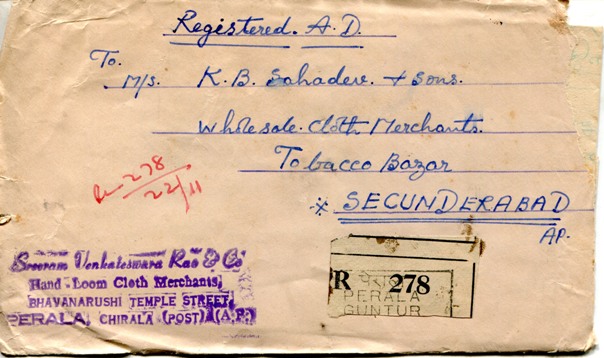 Registered. A.D.
To.
M/s. K. B. Sahadev. & Sons.
Wholesale. Cloth Merchants.
Tobacco Bazar
* SECUNDERABAD
A.P.
278
22/11
Sreeram Venkateswara Rao & Co
Hand-Loom Cloth Merchants,
BHAVANARUSHI TEMPLE STREET,
PERALA, CHIRALA (POST) (A.P.)
R 278
PERALA
GUNTUR